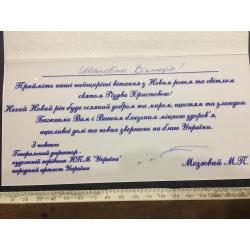 Шановна Вікторіє!
Прийміть наші найщиріші вітання з Новим роком та світлим
святом Різдва Христового!
Нехай Новий рік буде осяяний добром та миром, щастям та злагодою.
Бажаємо Вам і Вашим близьким міцного здоров'я,
щасливої долі та нових звершень на благо України.
З повагою
Генеральний директор-
художній керівник НПМ "Україна"
народний артист України
Мезговий М.П.